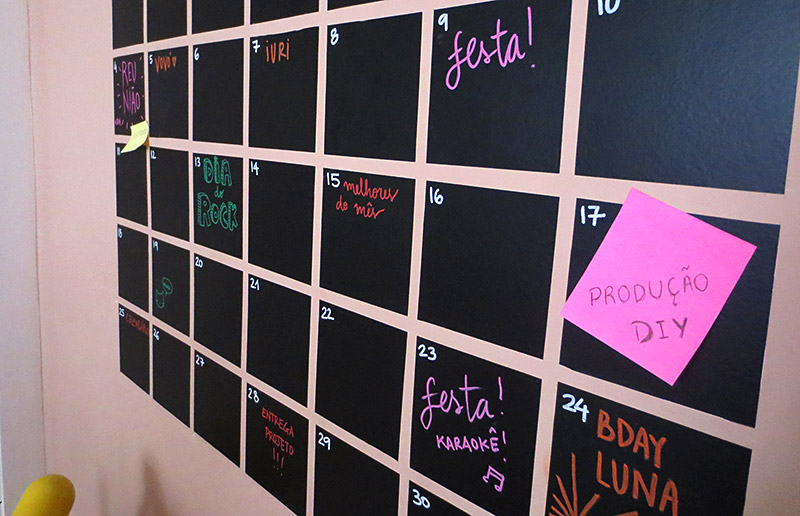 4
REU
NIÃO
5
VOVÓ
6
7
IURI
8
9
festa!
10
11
12
13
DIA
do
ROCK
14
15
melhores
do mês
16
17
PRODUÇÃO
DIY
18
19
20
21
22
23
festa!
KARAOKÊ!
24
BDAY
LUNA
25
26
27
28
ENTREGA
PROJETO
!!!
29
30